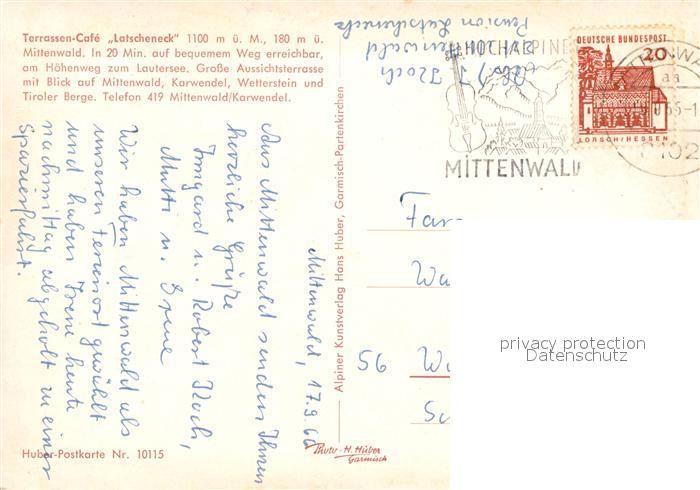 Terrassen-Café „Latscheneck" 1100 m ü. M., 180 m ü.
Mittenwald. In 20 Min. auf bequemem Weg erreichbar,
am Höhenweg zum Lautersee. Große Aussichtsterrasse
mit Blick auf Mittenwald, Karwendel, Wetterstein und
Tiroler Berge. Telefon 419 Mittenwald/Karwendel.
Mittenwald, 17.9.66
Aus Mittenwald senden Ihnen
herzliche Grüße
Irmgard u. Robert Koch,
Mutti u. Irene
Wir haben Mittenwald als
unseren Ferienort gewählt
und haben Irene heute
nachmittag abgeholt zu einer
Spazierfahrt.
Huber-Postkarte Nr. 10115
Alpiner Kunstverlag Hans Huber, Garmisch-Partenkirchen
Photo-H. Huber
Garmisch
Koch
Mittenwald
Pension Latscheneck
HOCHALPINE
MITTENWALD
DEUTSCHE BUNDESPOST
20
LORSCH/HESSEN
MITTENWA
aa
8102
Fam
Wa
56 W
Sc
privacy protection
Datenschutz